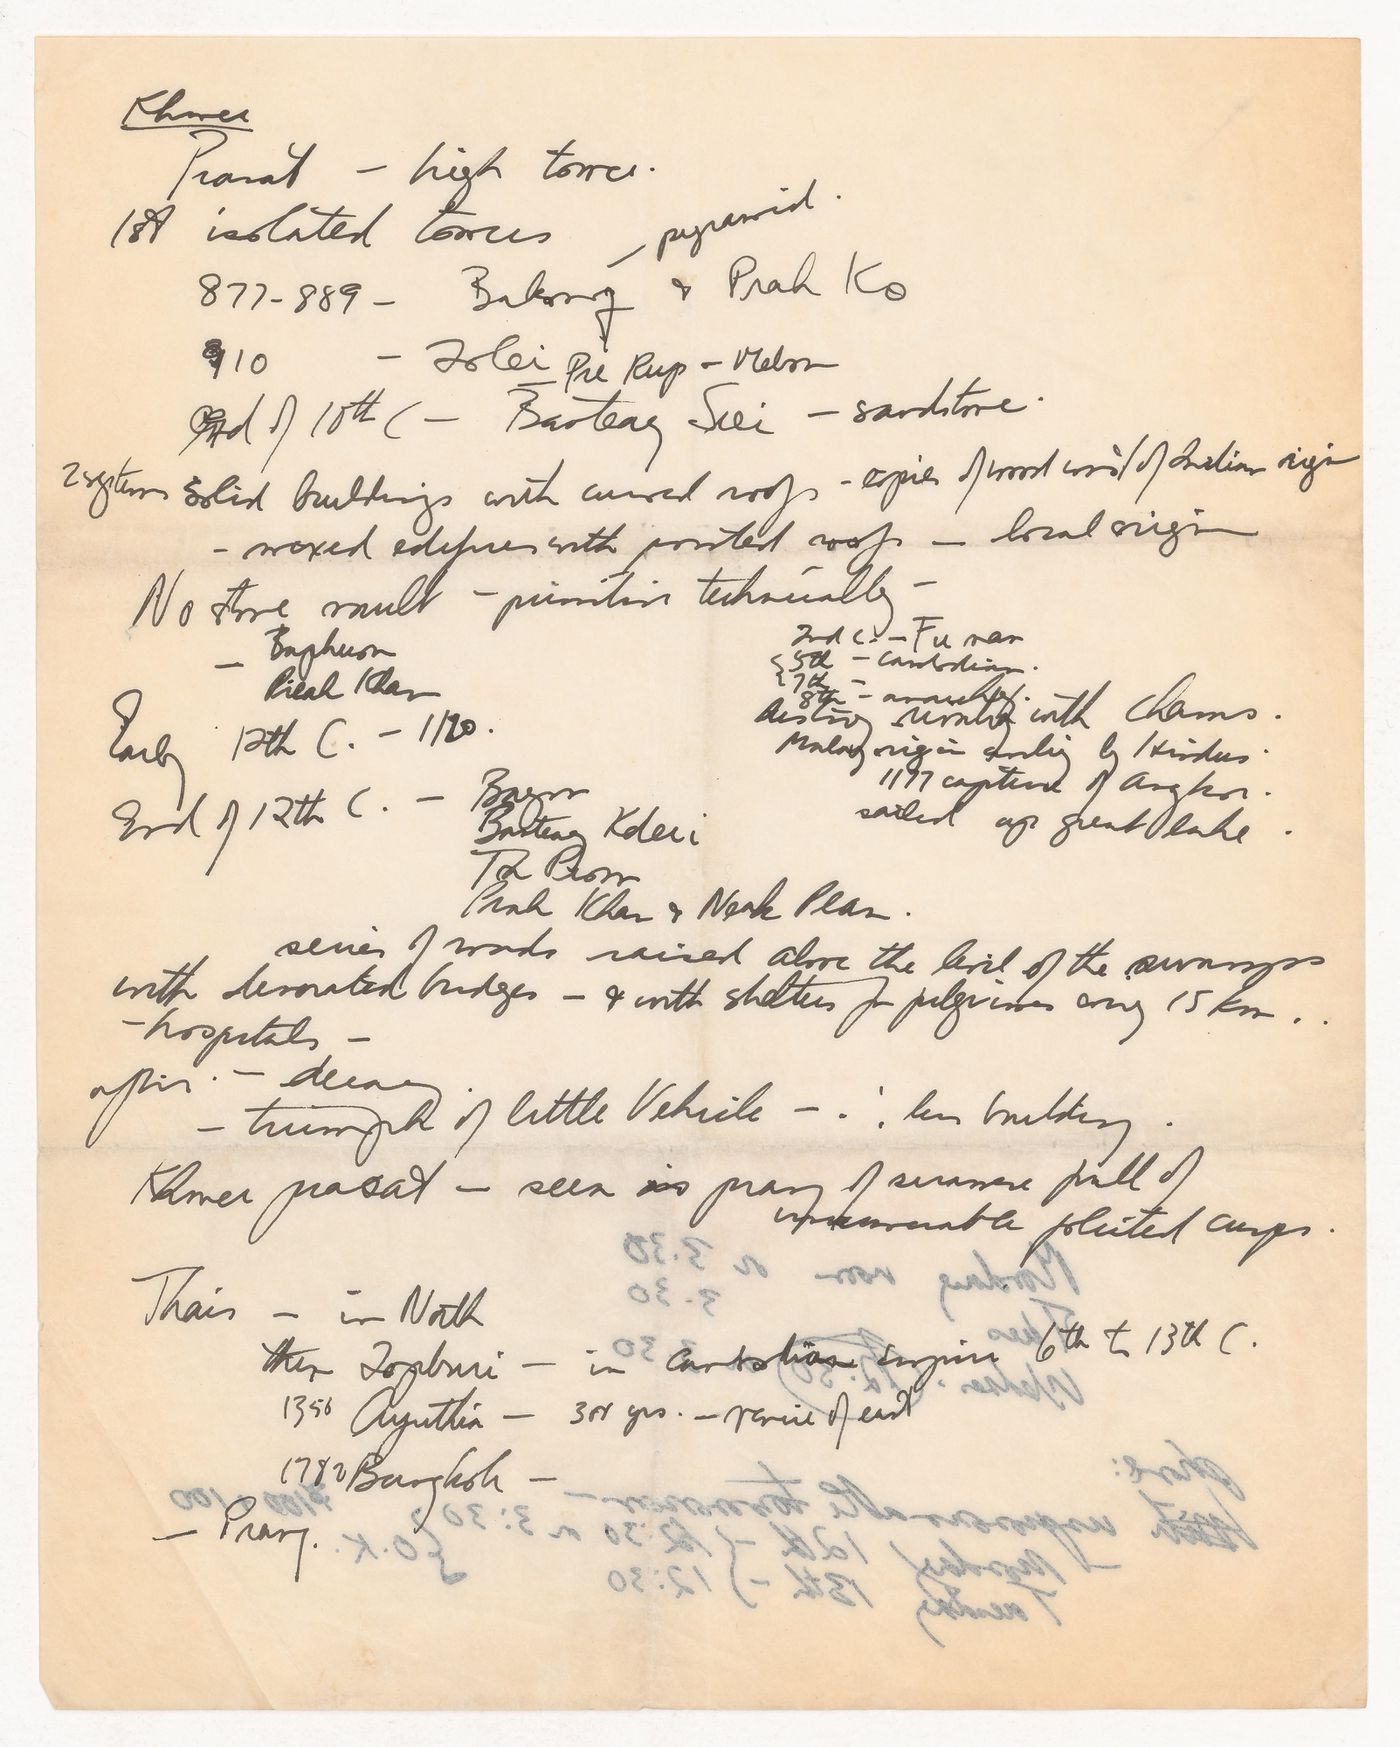 Khmer
Prasat – high tower.
1st isolated towers
– pyramid.
877-889 – Bakong & Prah Ko
910 – Lolei Pre Rup – Mebon
End of 10th C – Banteay Srei – sandstone.
2 systems solid buildings with curved roofs – copies of wood const of Indian origin
– mixed edifices with pointed roofs – local origin
No stone vault – primitive technically –
– Baphuon
Preah Khan
2nd C. – Fu nan
5th – cambodian.
7th –
8th – anarchy.
Early 12th C. – 1120.
destroy rivalry with Chams.
Malay origin by Hindus.
1177 capture of Angkor.
sailed up great lake.
End of 12th C. – Bayon
Banteay Kdei
Ta Prom
Prah Khan & Neak Pean.
series of roads raised above the level of the swamps
with decorated bridges – & with shelters for pilgrims every 15 km..
– hospitals –
after. – decay.
– triumph of little Vehicle – ∴ less building.
Khmer prasat – seen in prang of siamese full of
innumerable pleated curves.
Thais – in North
then Lopburi – in cambodian empire 6th to 13th C.
1350 Ayuthia – yrs. – Venice of east
1782 Bangkok –
– Prang.
Monday noon or 3.30
Tues 3.30
Wednes. 12:30 3.30
phone:
unpronounceable tomorrow –
Monday 12th – 12:30 or 3:30
Tuesday 13th – 12:30
O.K.